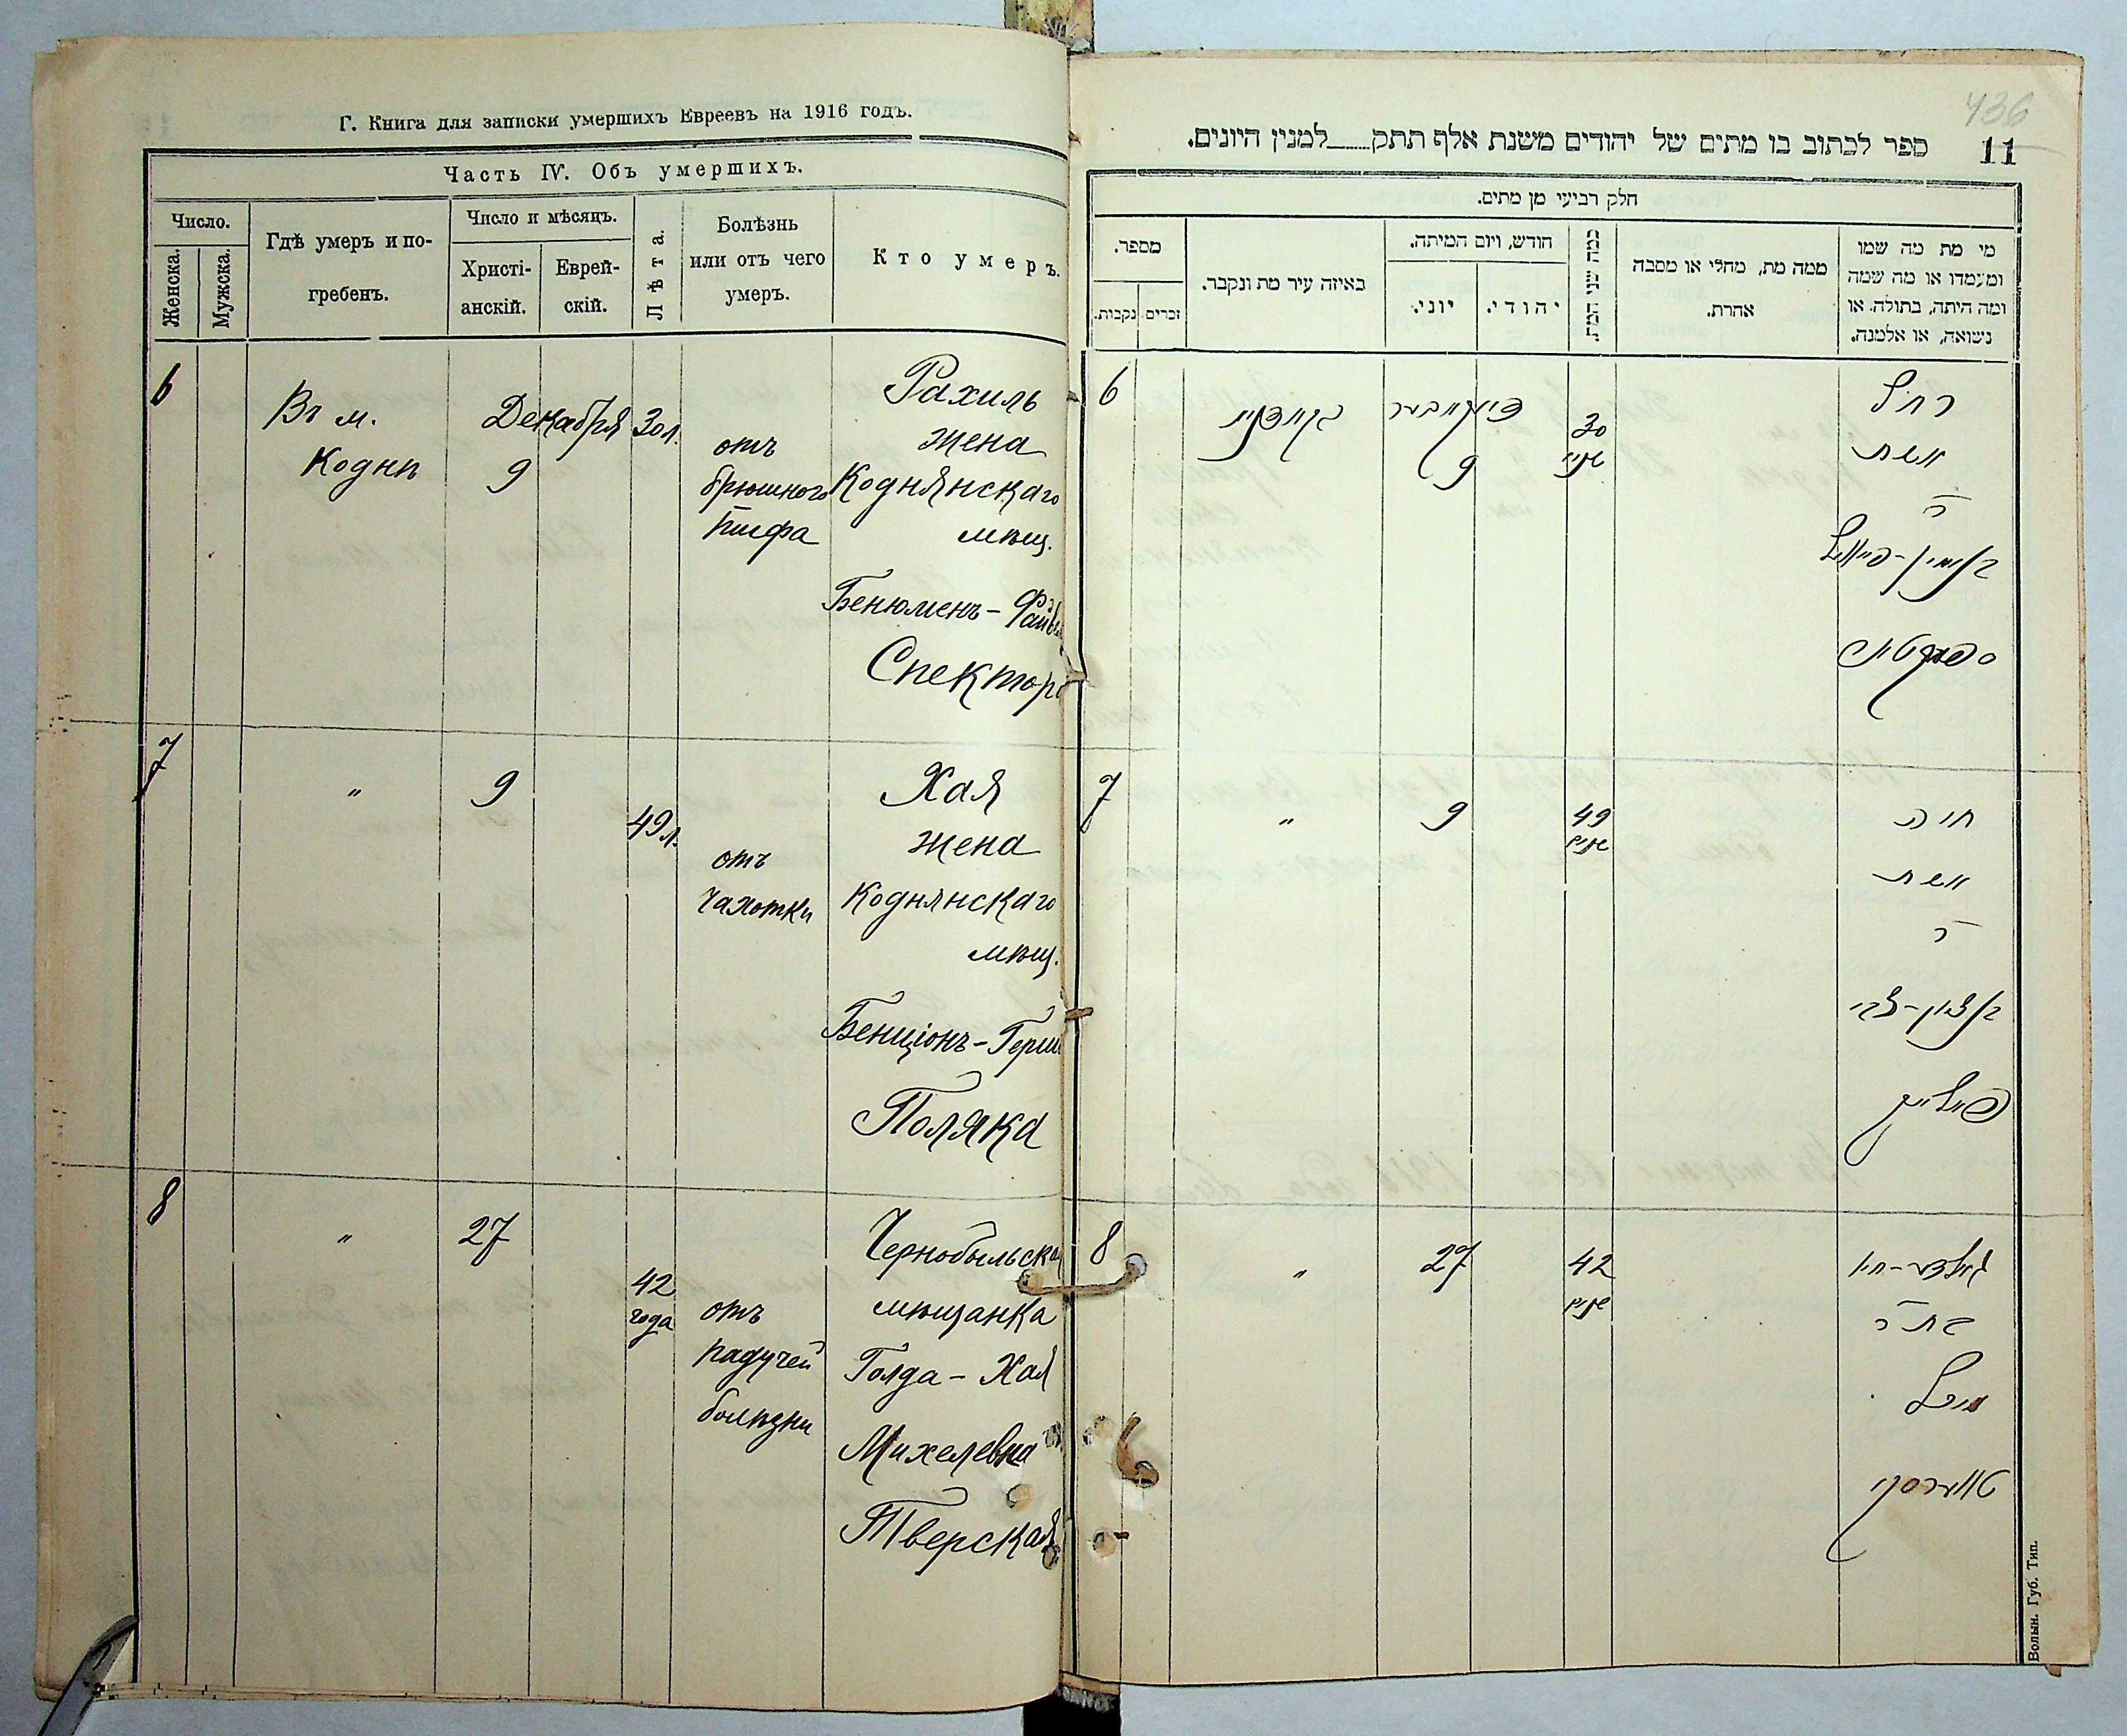 Г. Книга для записки умершихъ Евреевъ на 1916 годъ.
Часть IV. Объ умершихъ.
Число.
Женска.
Мужска.
Гдѣ умеръ и по-
гребенъ.
Число и мѣсяцъ.
Христі-
анскій.
Еврей-
скій.
Лѣта.
Болѣзнь
или отъ чего
умеръ.
Кто умеръ.
6
Въ м.
Коднѣ
Декабря
9
30 л.
отъ
брюшного
тифа
Рахиль
жена
Коднянскаго
мѣщ.
Бенюменъ-Файвел
Спектора
7
"
9
49 л.
отъ
чахотки
Хая
жена
Коднянскаго
мѣщ.
Бенціонъ-Герш
Поляка
8
"
27
42
года
отъ
падучей
болѣзни
Чернобыльская
мѣщанка
Голда-Хая
Михелевна
Тверская
436
11
ספר לכתוב בו מתים של יהודים משנת אלף תתק____למנין היונים.
חלק רביעי מן מתים.
מספר.
נקבות.
זכרים
באיזה עיר מת ונקבר.
חודש, ויום המיתה.
יוני.
יהודי.
כמה שני המת.
ממה מת, מחלי או מסבה
אחרת.
מי מת מה שמו
ומעמדו או מה שמה
ומה היתה, בתולה, או
נשואה, או אלמנה.
6
9
30
שנים
רחל
אשת
ר'
בנימין-פייוויל
ספעקטור
7
"
9
49
שנים
חיה
אשת
ר'
בן ציון-צבי
פאליק
8
"
27
42
שנים
גאלדע-חיה
בת ר'
מיכל
טווערסקי
Волын. Губ. Тип.